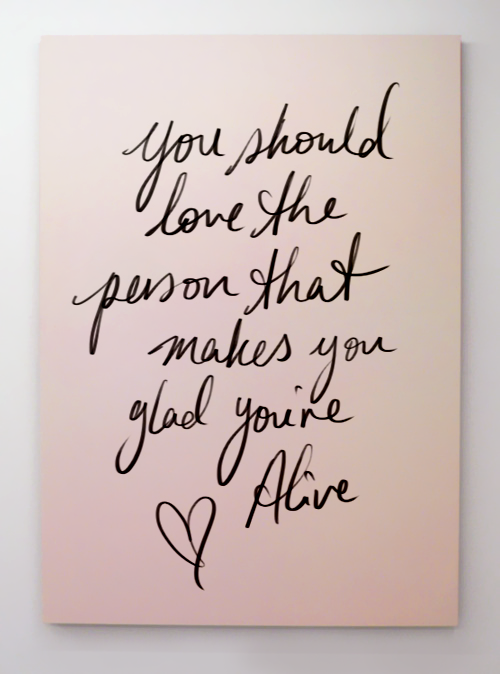 you should
love the
person that
makes you
glad you're
Alive